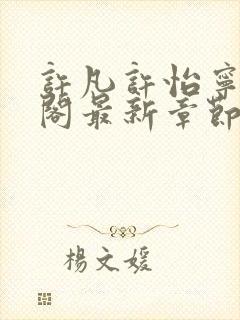 許凡許怡寧
閣最新章節
楊文媛